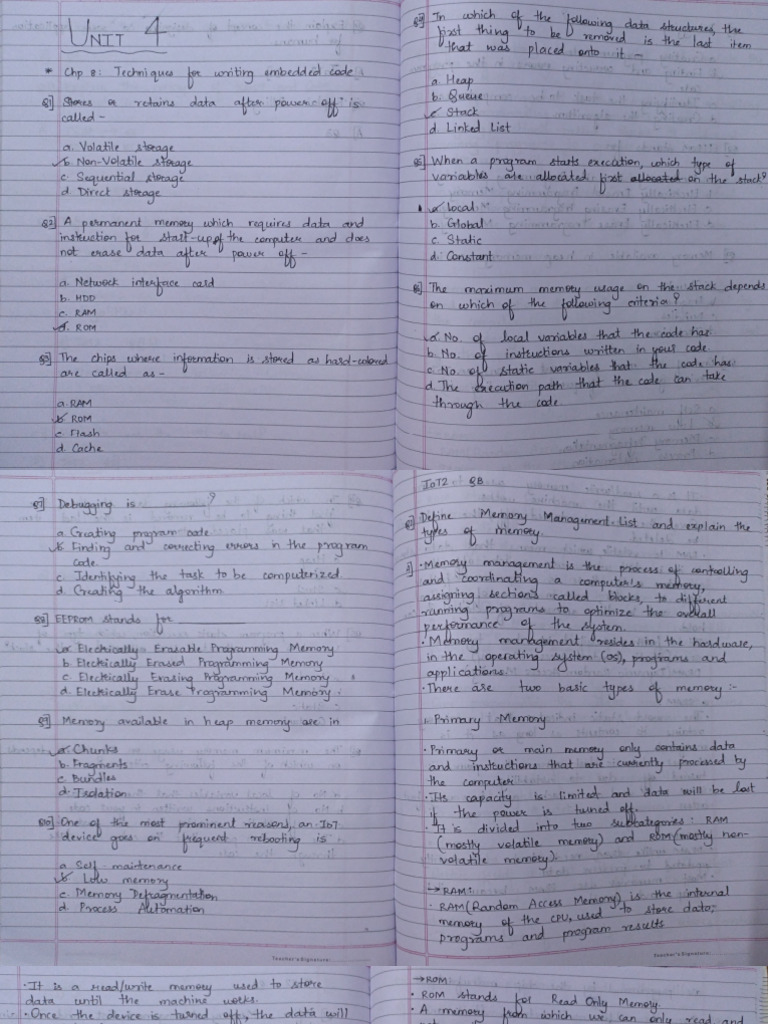 UNIT 4
* Chp 8: Techniques for writing embedded code
Q1] Stores or retains data after power off is
called -
a. Volatile storage
b. Non-Volatile storage
c. Sequential storage
d. Direct storage
Q2] A permanent memory which requires data and
instruction for start-up of the computer and does
not erase data after power off -
a. Network interface card
b. HDD
c. RAM
d. ROM
Q3] The chips where information is stored as hard-colored
are called as -
a. RAM
b. ROM
c. Flash
d. Cache
Q4] In which of the following data structures, the
first thing to be removed is the last item
that was placed onto it -
a. Heap
b. Queue
c. Stack
d. Linked List
Q5] When a program starts execution, which type of
variables are allocated first allocated on the stack?
a. Local
b. Global
c. Static
d. Constant
Q6] The maximum memory usage on the stack depends
on which of the following criteria?
a. No. of local variables that the code has
b. No. of instructions written in your code
c. No. of static variables that the code has
d. The execution path that the code can take
through the code
Q7] Debugging is
a. Creating program code
b. Finding and correcting errors in the program
code.
c. Identifying the task to be computerized.
d. Creating the algorithm
Q8] EEPROM stands for
a. Electrically Erasable Programming Memory
b. Electrically Erased Programming Memory
c. Electrically Erasing Programming Memory
d. Electrically Erase Programming Memory
Q9] Memory available in heap memory are in
a. Chunks
b. Fragments
c. Bundles
d. Isolation
Q10] One of the most prominent reasons, an IoT
device goes on frequent rebooting is
a. Self-maintenance
b. Low memory
c. Memory Defragmentation
d. Process Automation
Teacher's Signature
IOT2 QB
Define Memory Management List and explain the
types of memory.
• Memory management is the process of controlling
and coordinating a computer's memory,
assigning sections called blocks, to different
running programs to optimize the overall
performance of the system.
• Memory management resides in the hardware,
in the operating system (OS), programs and
applications.
• There are two basic types of memory :-
Primary Memory
• Primary or main memory only contains data
and instructions that are currently processed by
the computer
• Its capacity is limited and data will be lost
if the power is turned off.
• It is divided into two subcategories: RAM
(mostly volatile memory) and ROM (mostly non-
volatile memory).
→ RAM:
• RAM (Random Access Memory) is the internal
memory of the CPU, used to store data,
programs and program results
Teacher's Signature
• It is a read/write memory used to store
data until the machine works.
• Once the device is turned off, the data will
→ ROM
• ROM stands for Read Only Memory.
• A memory from which we can only read and